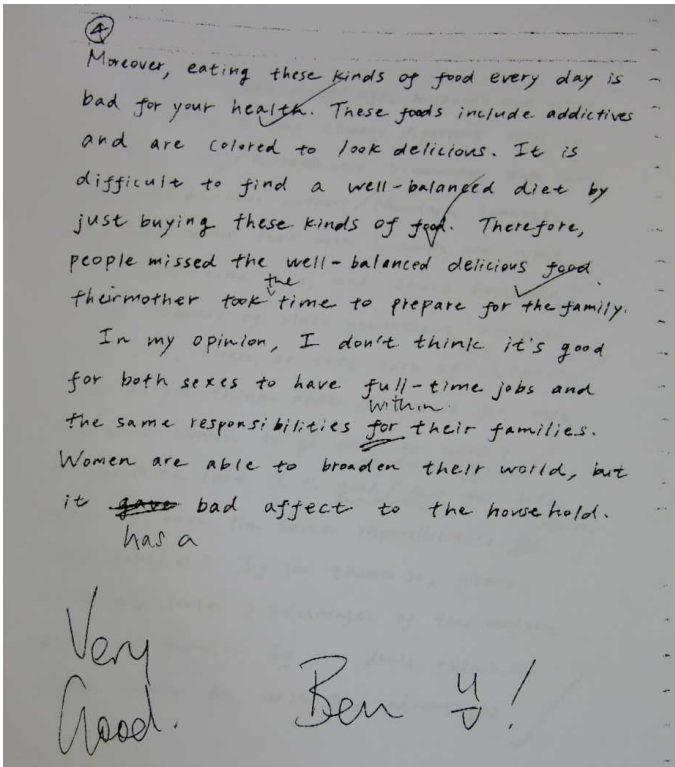 4
Moreover, eating these kinds of food every day is
bad for your health. These foods include addictives
and are colored to look delicious. It is
difficult to find a well-balanced diet by
just buying these kinds of food. Therefore,
people missed the well-balanced delicious food
the
theirmother took time to prepare for the family.
In my opinion, I don't think it's good
for both sexes to have full-time jobs and
within
the same responsibilities for their families.
Women are able to broaden their world, but
it gave bad affect to the household.
has a
Very
Good.
Ben !